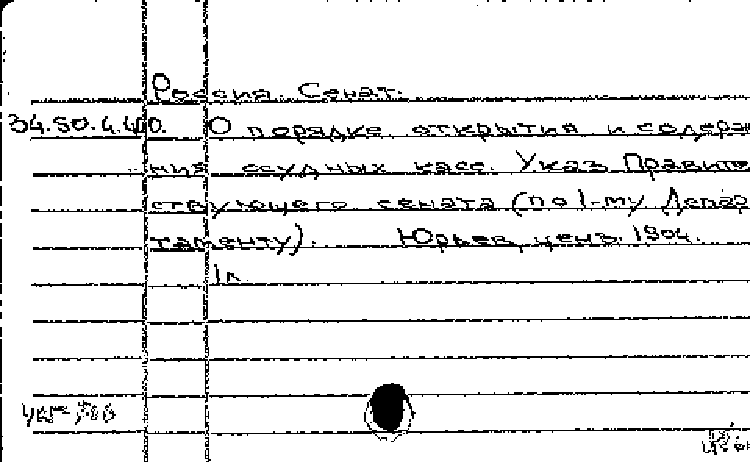 Россия. Сенат.
34.50.4.400. О порядке открытия и содержа
ния ссудных касс. Указ Правите
ствующего сената (по 1-му Депар
таменту). Юрьев, ценз. 1904.
1л